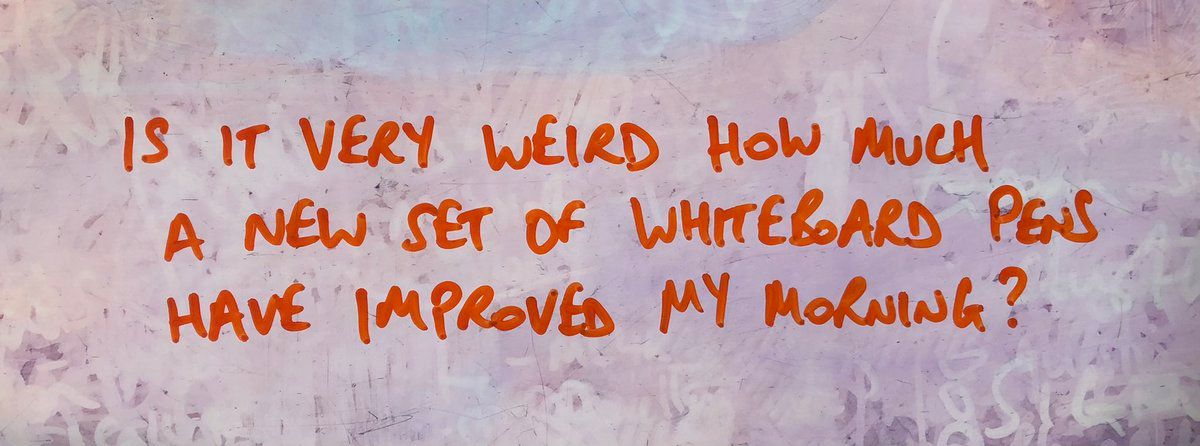 IS IT VERY WEIRD HOW MUCH
A NEW SET OF WHITEBOARD PENS
HAVE IMPROVED MY MORNING?